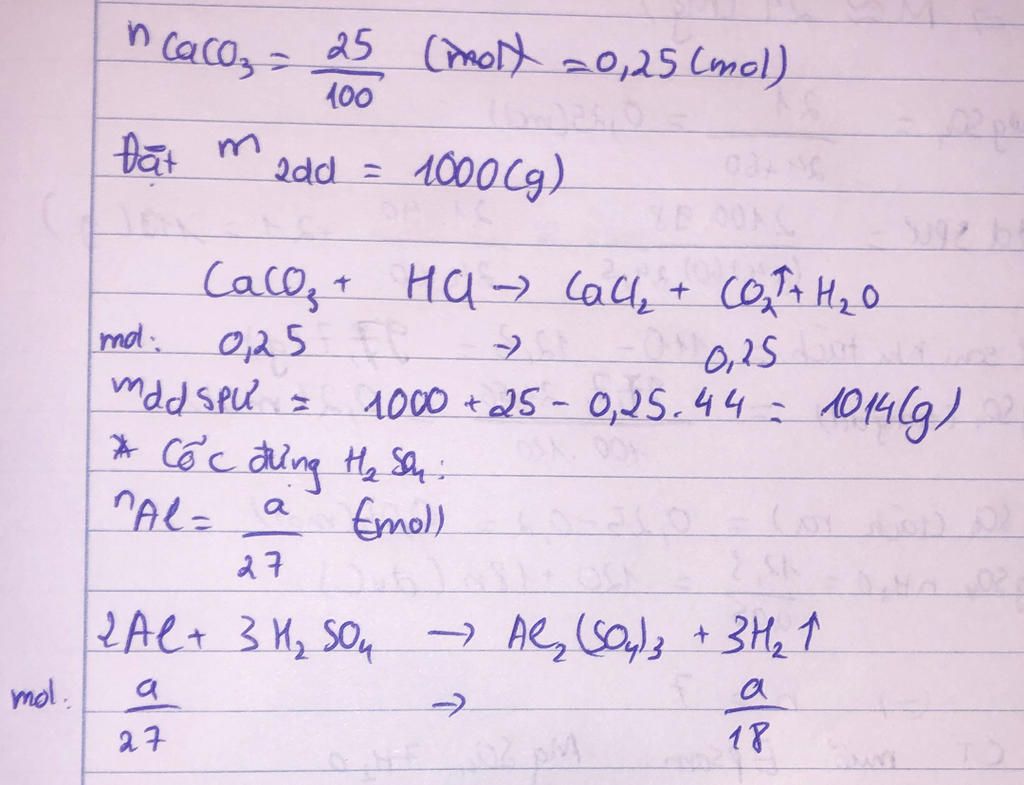 nCaCO₃ = 25/100 (mol) = 0,25 (mol)
Đặt m 2dd = 1000(g)
CaCO₃ + HCl → CaCl₂ + CO₂↑ + H₂O
mol: 0,25 → 0,25
mdd spư = 1000 + 25 - 0,25.44 = 1014(g)
* Cốc đựng H₂SO₄:
nAl = a/27 (mol)
2Al + 3H₂SO₄ → Al₂(SO₄)₃ + 3H₂↑
mol: a/27 → a/18